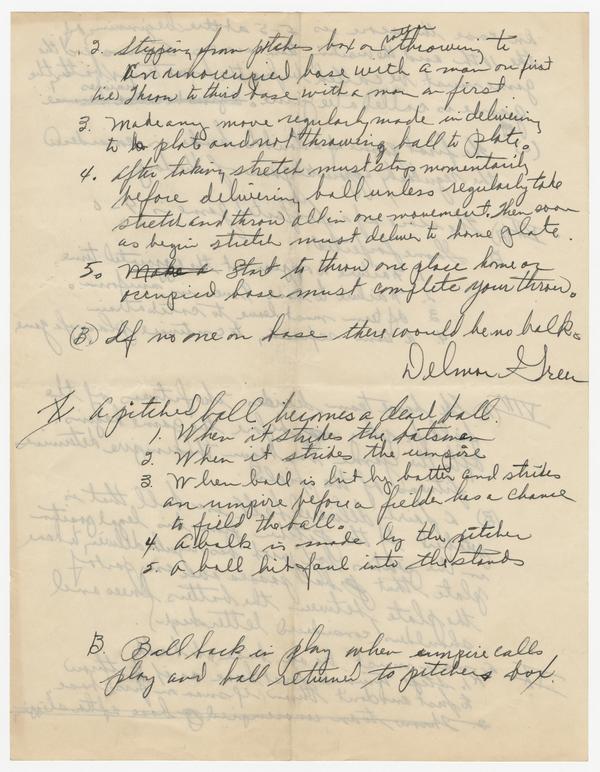 2. Stepping from pitchers box or throwing to
an unoccupied base with a man on first
i.e. Throw to third base with a man on first
3. Make any move regularly made in delivering
to plate and not throwing ball to plate.
4. After taking stretch must stop momentarily
before delivering ball unless regularly take
stretch and throw all in one movement. Then soon
as begin stretch must deliver to home plate.
5. Make a Start to throw one place home or
occupied base must complete your throw.
(B.) If no one on base there would be no balk.
Delmar Green
X A pitched ball becomes a dead ball.
1. When it strikes the batsman
2. When it strikes the umpire
3. When ball is hit by batter and strikes
an umpire before a fielder has a chance
to field the ball.
4. A balk is made by the pitcher
5. A ball hit foul into the stands
B. Ball back in play when umpire calls
play and ball returned to pitchers box.